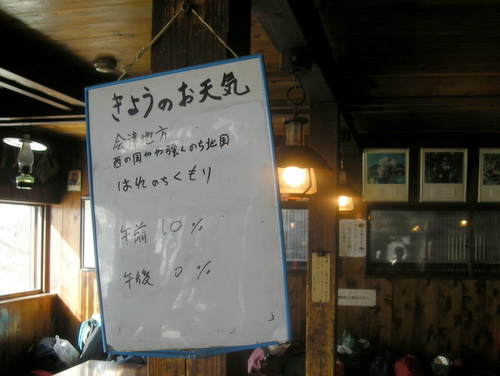 きょうのお天気
会津地方
西の風やや強くのち北風
はれのちくもり
午前 10%
午後 0%